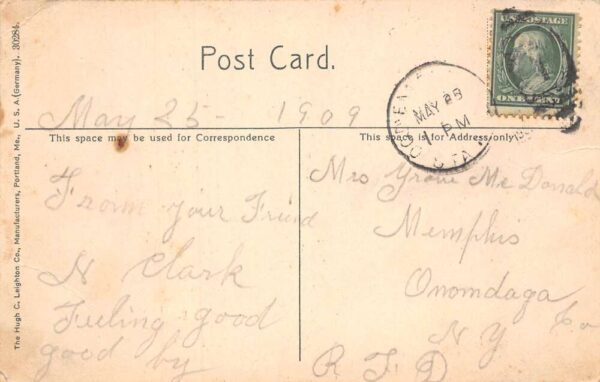 Post Card.
U.S. POSTAGE
ONE CENT
MAY 28
1 PM
May 25 - 1909
This space may be used for Correspondence
This space is for Address only
From your Friend
N Clark
Feeling good
good by
Mrs Mc Donald
Memphis
Onomdaga Co
N Y
R F D
The Hugh C. Leighton Co., Manufacturers, Portland, Me., U. S. A (Germany). 30284.